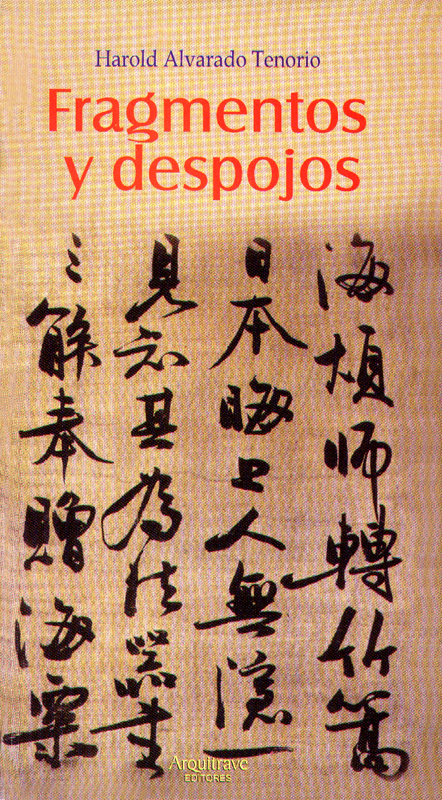 Harold Alvarado Tenorio
Fragmentos
y despojos
海師轉竹篙
日本晦上人無隱一
見其為法器
奉贈海粟
Arquitrave
EDITORES